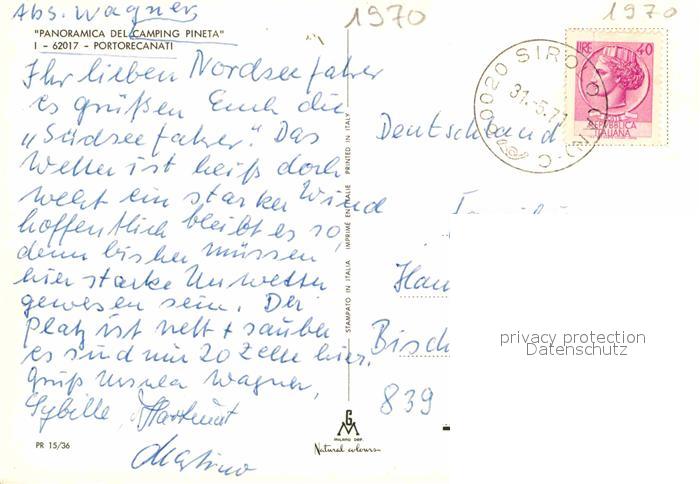 Abs. Wagner,
1970
1970
"PANORAMICA DEL CAMPING PINETA"
I - 62017 - PORTORECANATI
Ihr lieben Nordseefahrer
es grüßen Euch die
„Südseefahrer". Das
Wetter ist heiß doch
weht ein starker Wind
hoffentlich bleibt es so,
denn bisher müssen
hier starke Unwetter
gewesen sein. Der
Platz ist nett + sauber
es sind nur 20 Zelte hier.
Gruß Ursula Wagner,
Sybille, Hartmut
Martina
PR 15/36
STAMPATO IN ITALIA IMPRIMÉ EN ITALIE PRINTED IN ITALY
GM
MILANO DEP.
Natural colours
60020 SIROLO
31.-5.71
LIRE 40
POSTE
REPUBBLICA
ITALIANA
Deutschland
Han
Bisch
839
privacy protection
Datenschutz